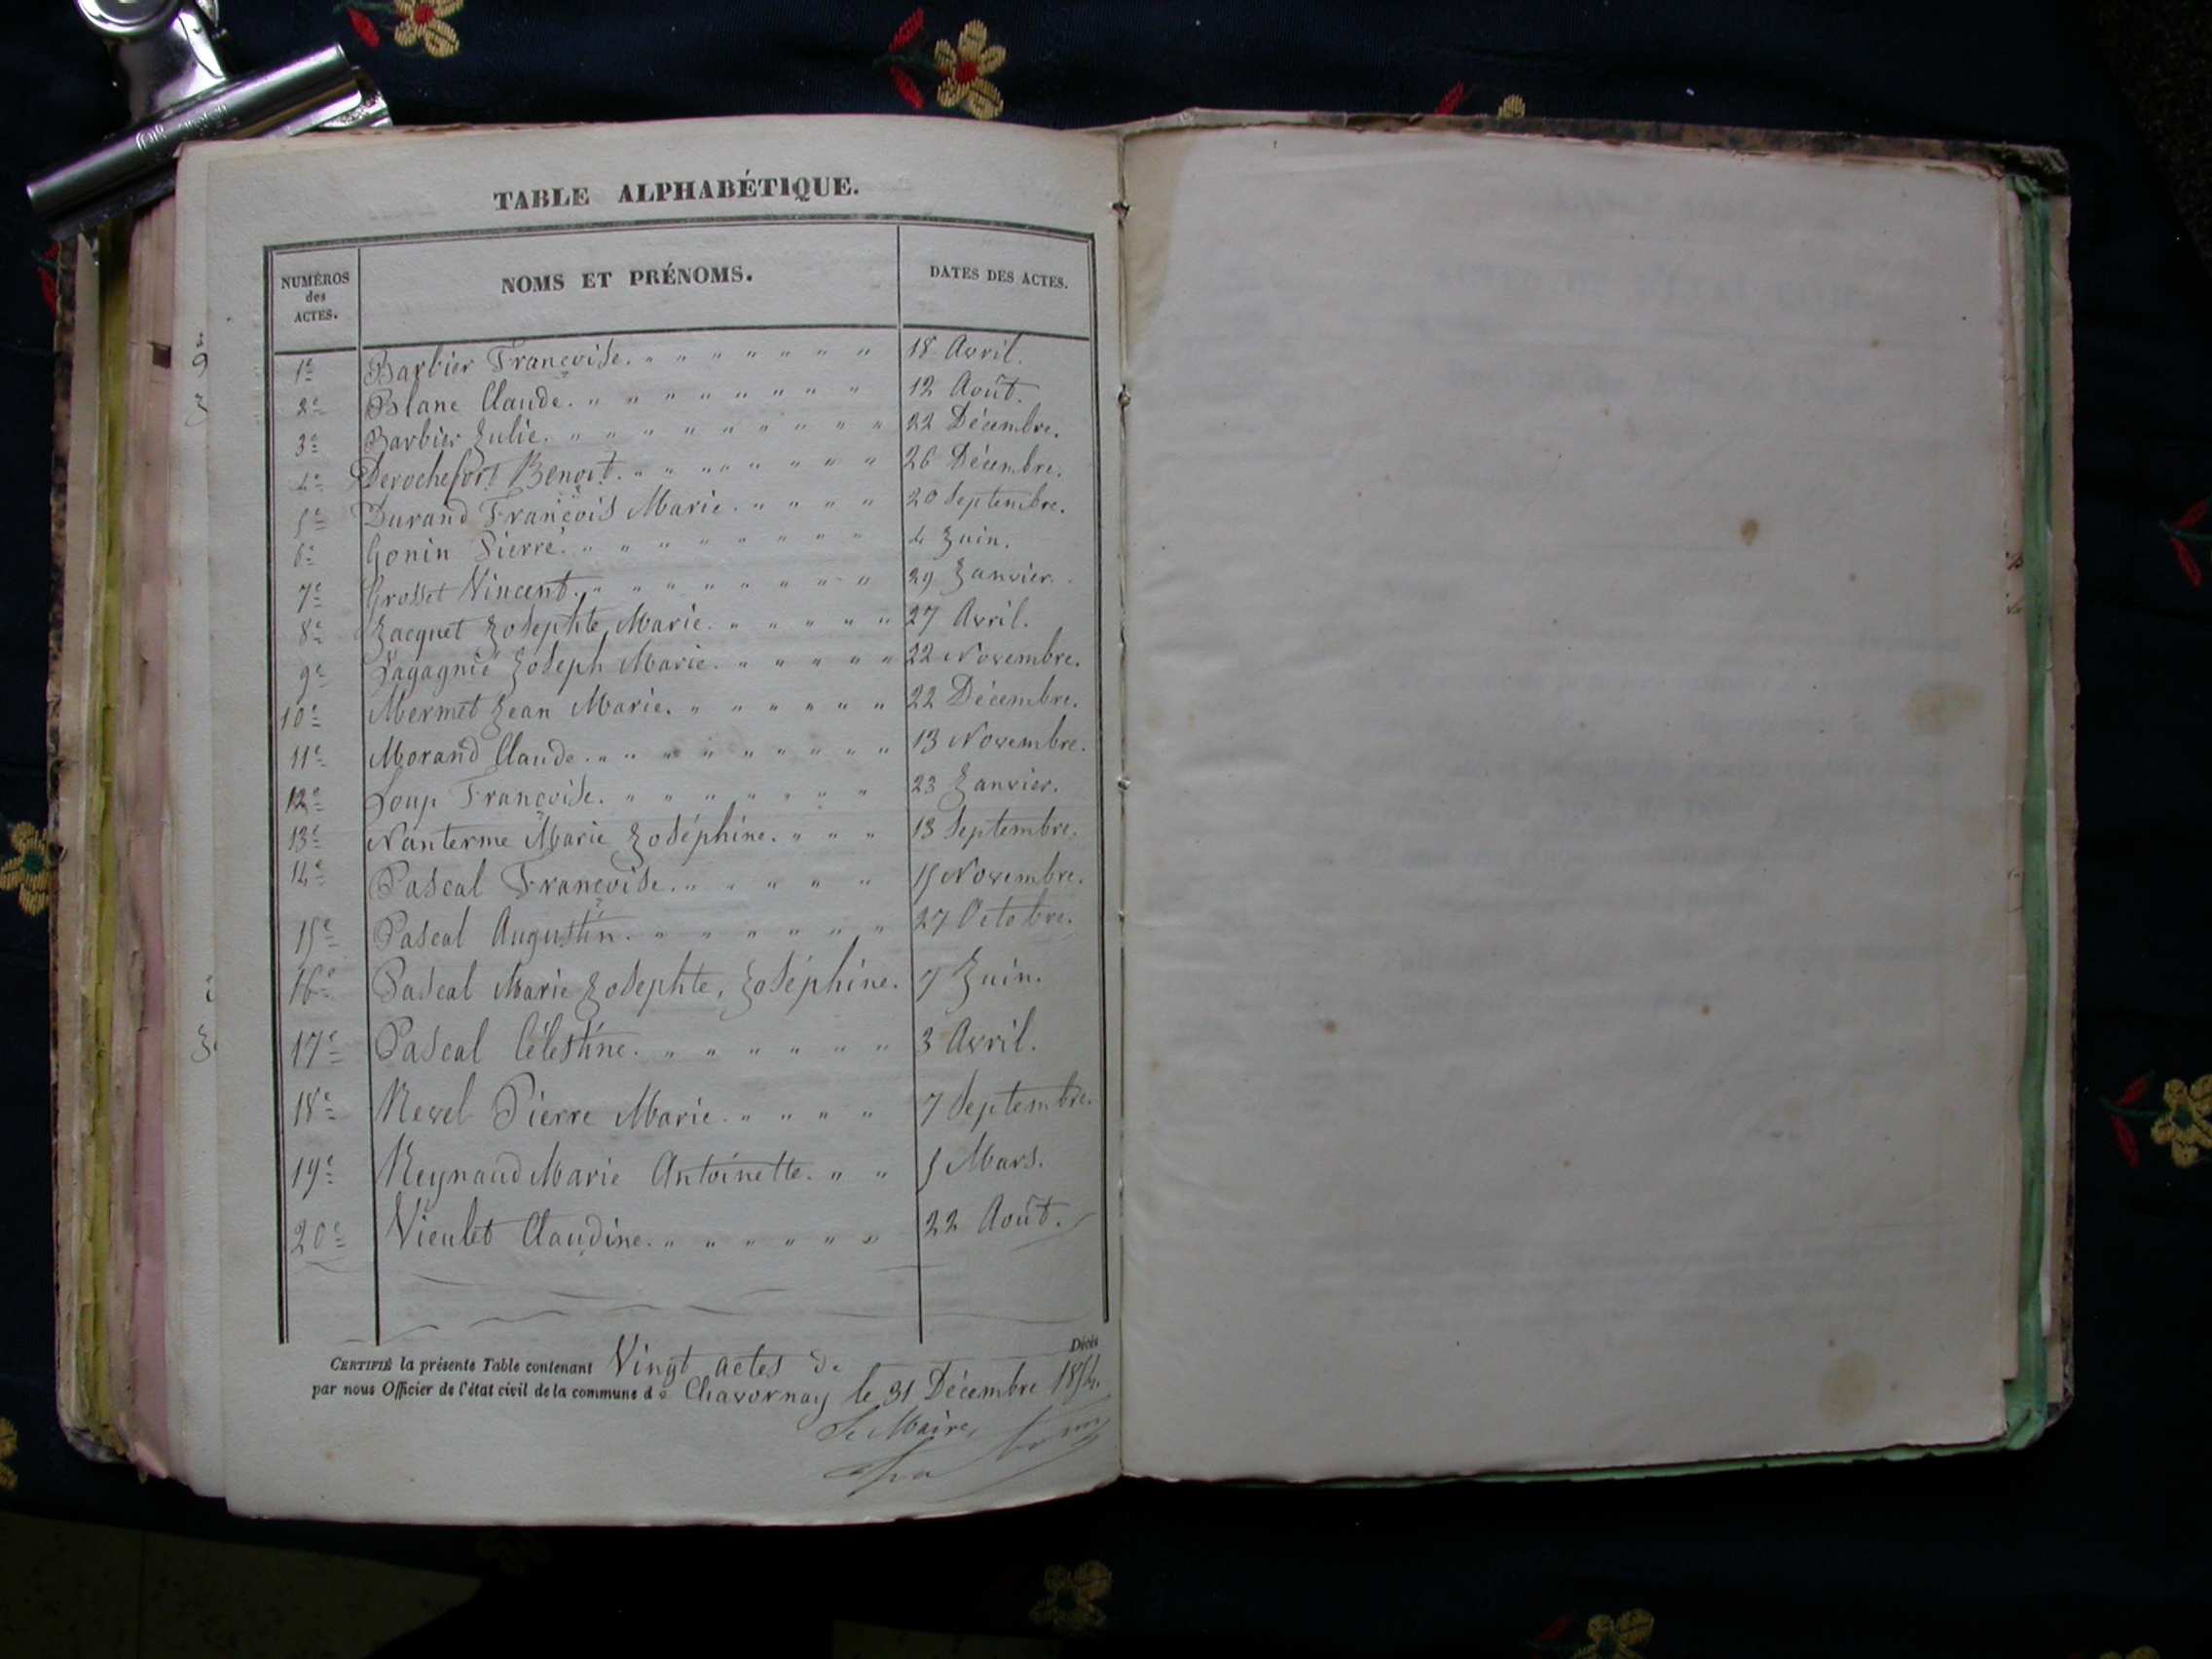 TABLE ALPHABÉTIQUE.
NUMÉROS des ACTES. NOMS ET PRÉNOMS. DATES DES ACTES.
1e Barbier Françoise. " " " " " " " 18 Avril.
2e Blanc Claude. " " " " " " " " 12 Août.
3e Barbier Julie. " " " " " " " " " 22 Décembre.
4e Derochefort Benoit. " " " " " " " " 26 Décembre.
5e Durand François Marie. " " " " " 20 Septembre.
6e Gonin Pierre. " " " " " " " " 4 Juin.
7e Grosset Vincent. " " " " " " " " 29 Janvier.
8e Jacquet Josephte Marie. " " " " " 27 Avril.
9e Joseph Marie. " " " " " 22 Novembre.
10e Mermet Jean Marie. " " " " " " 22 Décembre.
11e Morand Claude. " " " " " " " " " 13 Novembre.
12e Loup Françoise. " " " " " " " 23 Janvier.
13e Nanterme Marie Joséphine. " " " 13 Septembre.
14e Pascal Françoise. " " " " " 15 Novembre.
15e Pascal Augustin. " " " " " " 27 Octobre.
16e Pascal Marie Josephte, Joséphine. 7 Juin.
17e Pascal Célestine. " " " " " " 3 Avril.
18e Revel Pierre Marie. " " " " 7 Septembre.
19e Reynaud Marie Antoinette. " " 5 Mars.
20e Vieulet Claudine. " " " " " " 22 Août.
CERTIFIÉ la présente Table contenant Vingt actes de Décès
par nous Officier de l'état civil de la commune de Chavornay le 31 Décembre 1854.
Le Maire,